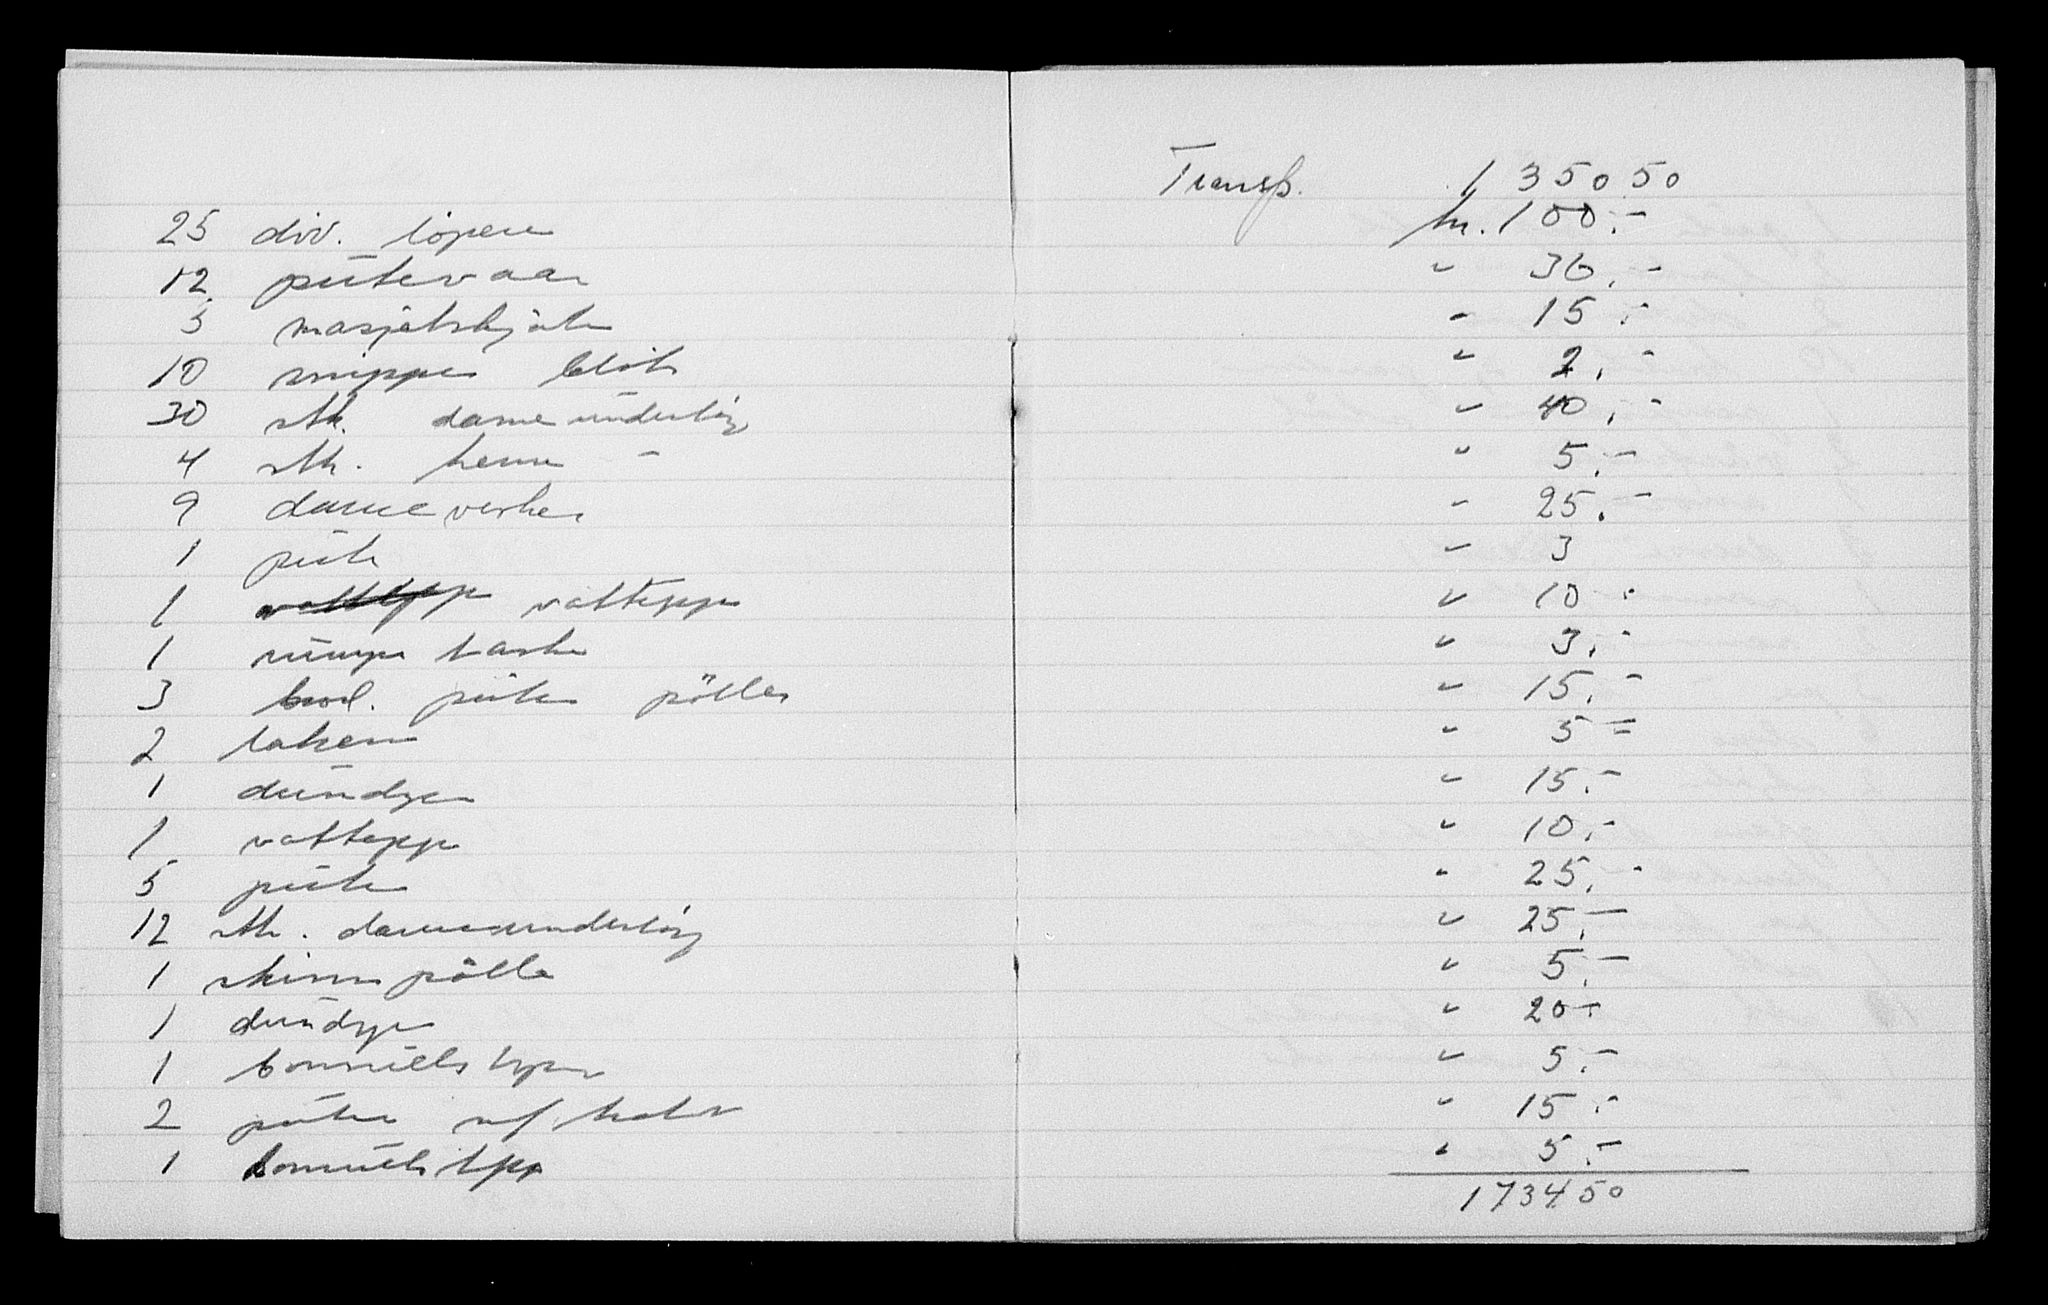 Transp. 1 350 50
25 div. löpere kr. 100.-
12 putevaar " 36.-
3 " 15.-
10 " 2.-
30 stk. dameundertöy " 40.-
4 stk. herre - " 5.-
9 damevesker " 25.-
1 pute " 3
1 vatteppe " 10.-
1 taske " 3.-
3 brod. puter pölle " 15.-
2 laken " 5 =
1 dundyne " 15.-
1 vatteppe " 10.-
5 puter " 25.-
12 stk. dameundertöy " 25.-
1 skinnpölle " 5.-
1 dundyne " 20-
1 bomulls teppe " 5.-
2 puter " 15.-
1 bomulls tpp " 5.-
1734 50